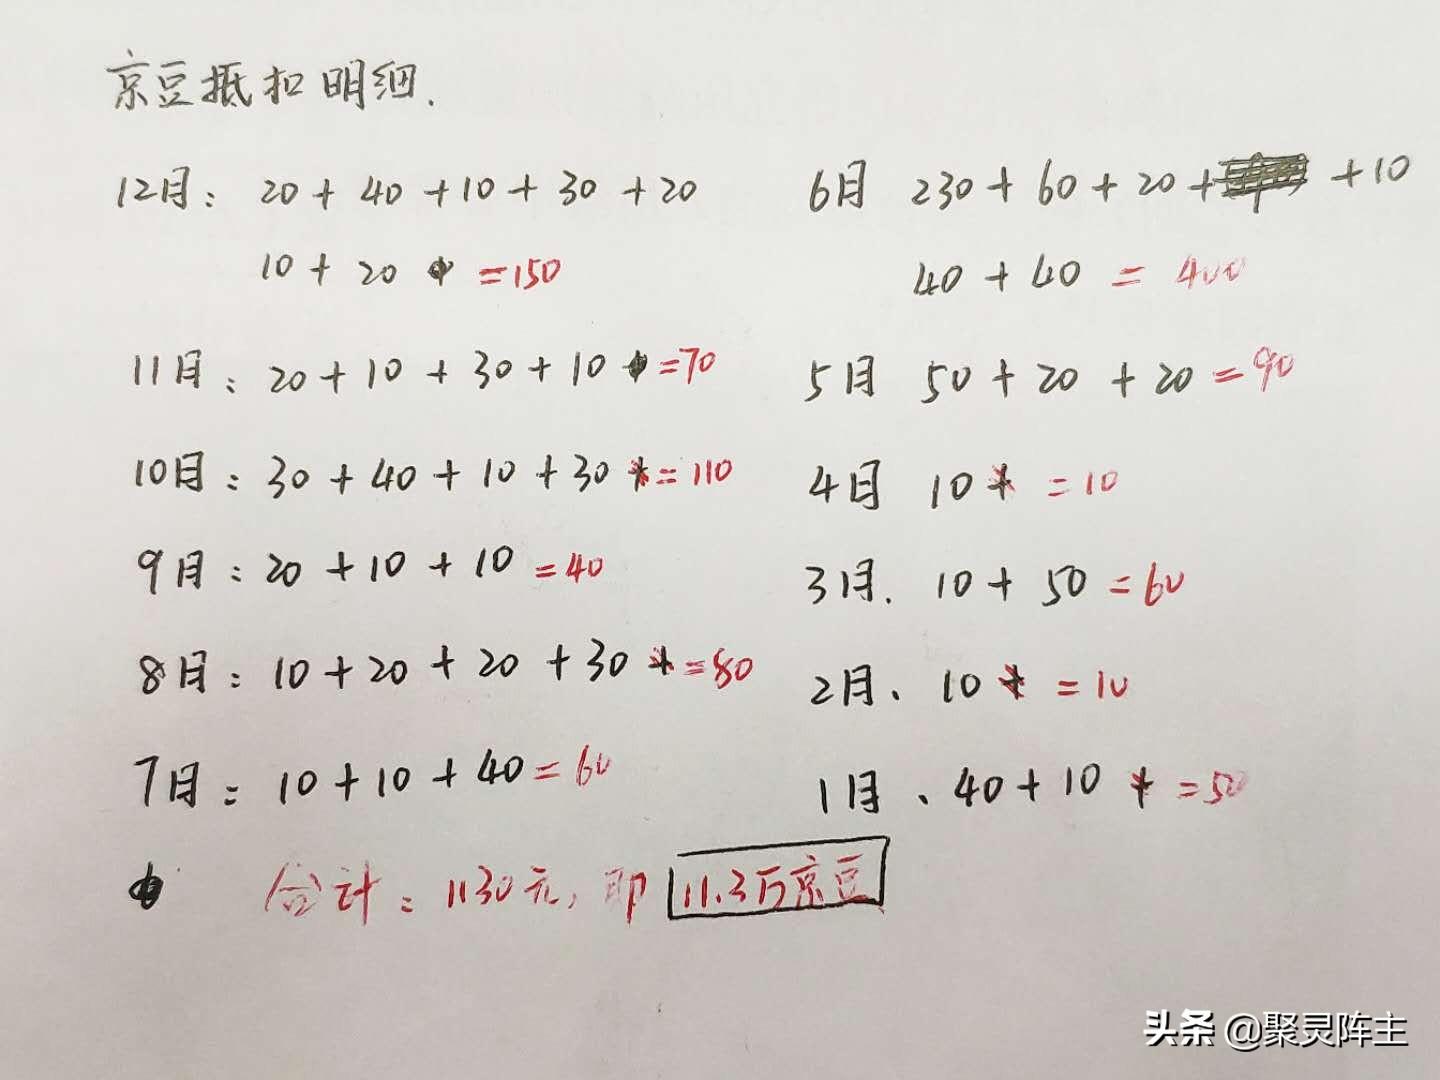 京豆抵扣明细.
12月: 20+40+10+30+20
10+20 =150
11月: 20+10+30+10 =70
10月: 30+40+10+30+=110
9月: 20+10+10=40
8月: 10+20+20+30+=80
7月: 10+10+40=60
6月 230+60+20+ +10
40+40=400
5月 50+20+20=90
4月 10+ =10
3月. 10+50=60
2月. 10+ =10
1月. 40+10+ =50
合计: 1130元, 即 11.3万京豆
头条 @聚灵阵主